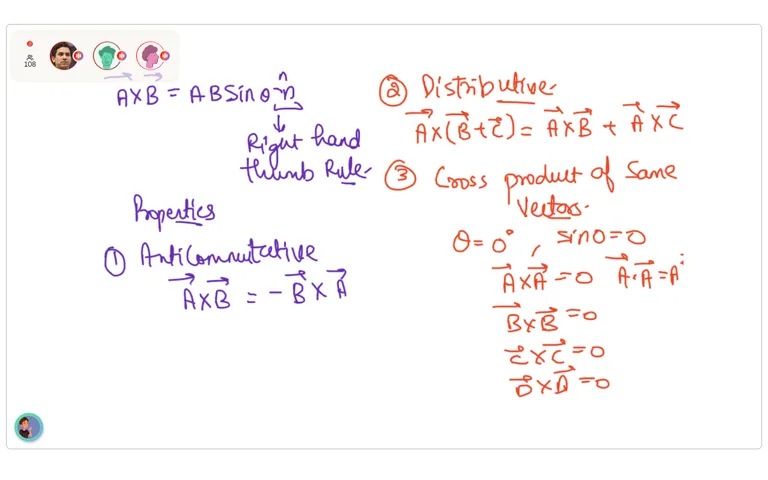 108
A×B = ABSinθ n̂
Right hand
thumb Rule
Properties
① AntiCommutative
A⃗×B⃗ = -B⃗×A⃗
② Distributive
A⃗×(B⃗+C⃗) = A⃗×B⃗ + A⃗×C⃗
③ Cross product of Same
Vectors.
θ=0°, sin0=0
A⃗×A⃗=0 A⃗·A⃗=A²
B⃗×B⃗=0
C⃗×C⃗=0
D⃗×D⃗=0